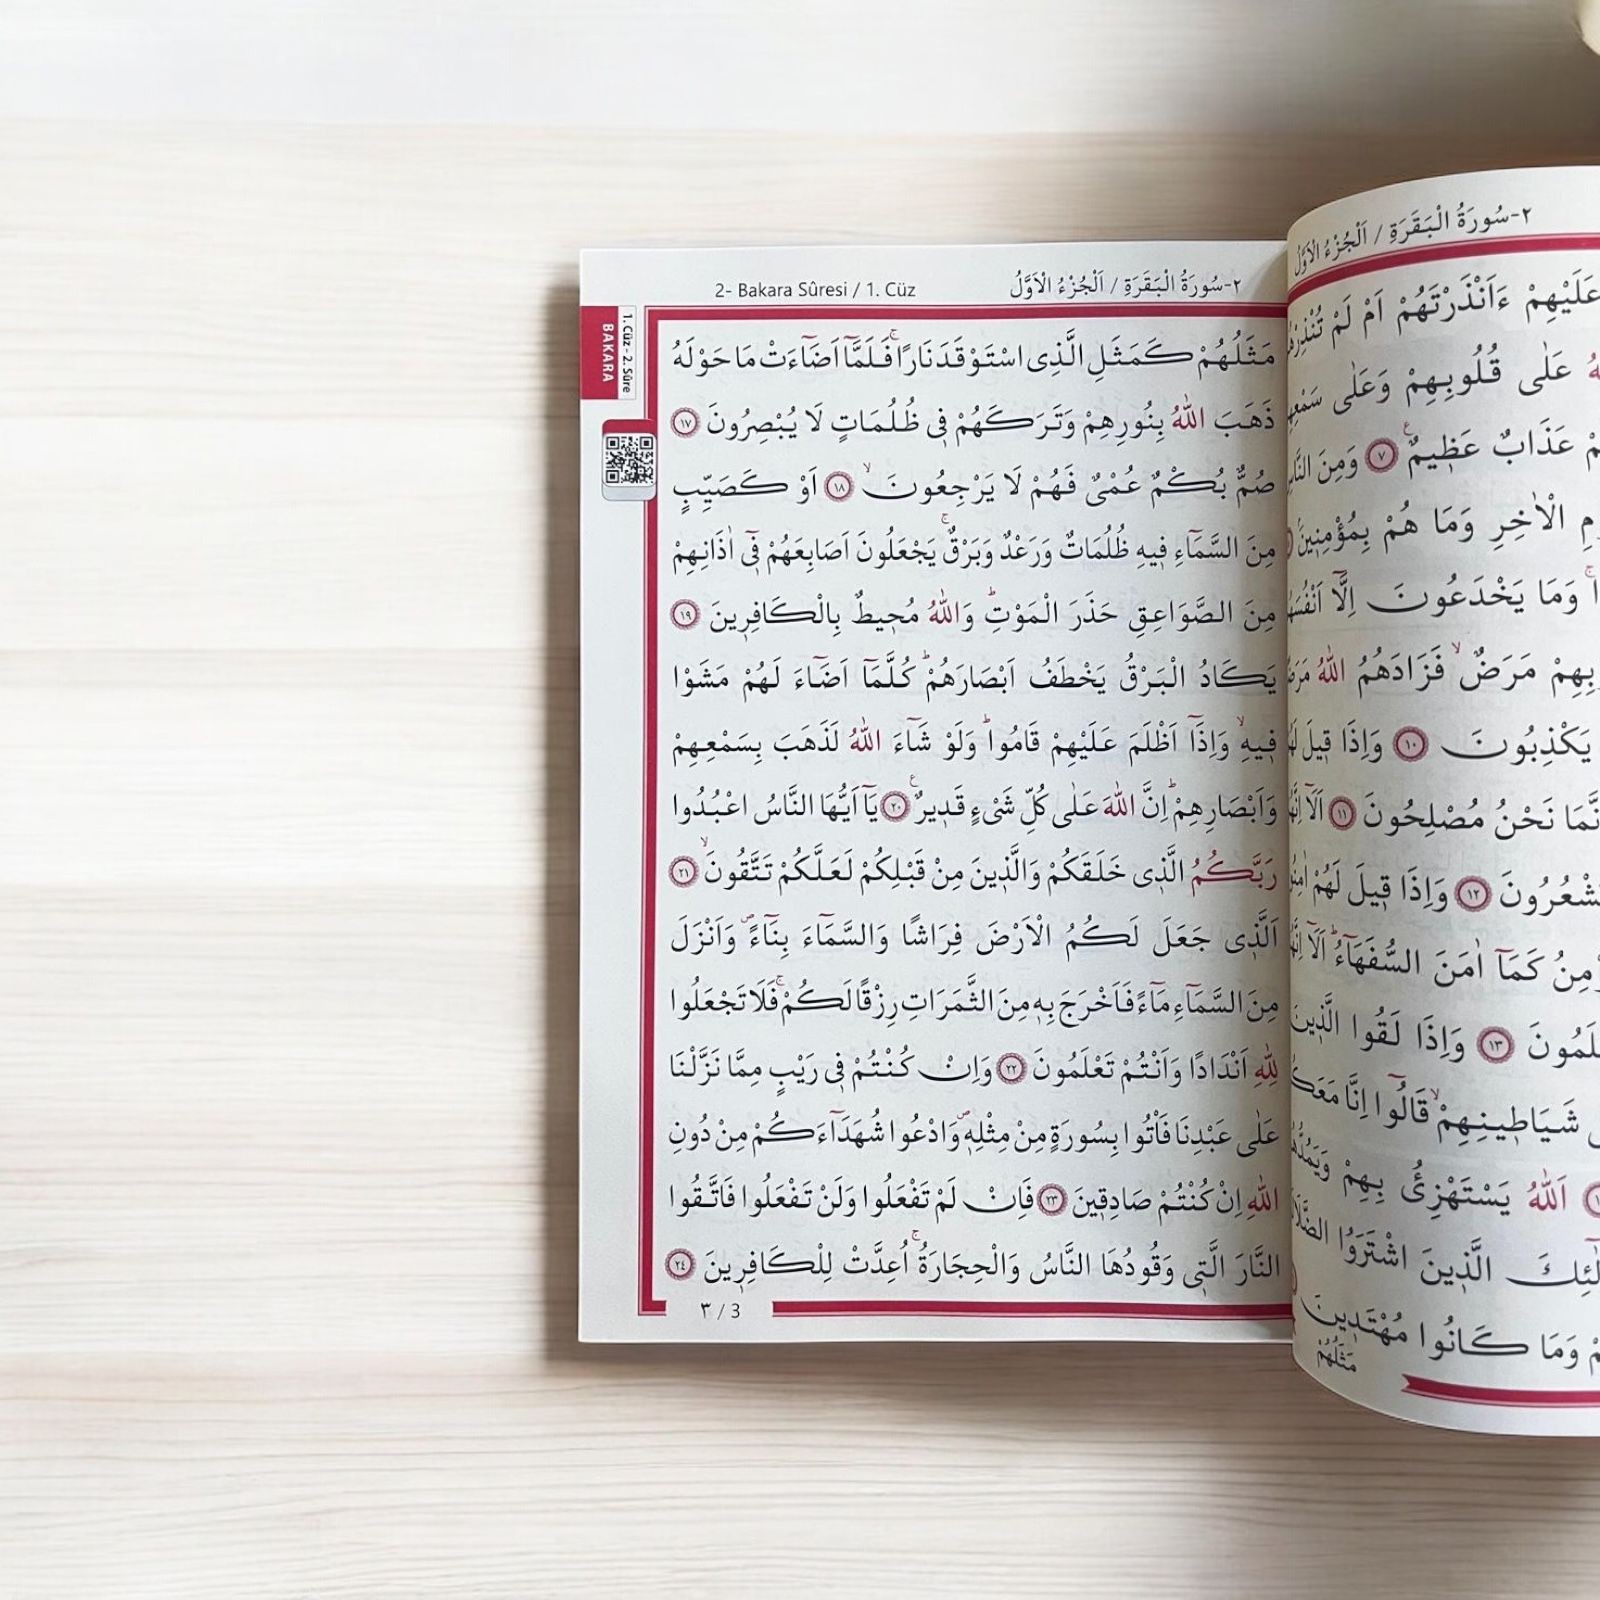 ٢-سُورَةُ الْبَقَرَةِ / اَلْجُزْءُ الْاَوَّلُ
عَلَيْهِمْ ءَاَنْذَرْتَهُمْ اَمْ لَمْ تُنْذِرْهُمْ
عَلٰى قُلُوبِهِمْ وَعَلٰى سَمْعِهِمْ
عَذَابٌ عَظ۪يمٌ ﴿٧﴾ وَمِنَ النَّاسِ
الْاٰخِرِ وَمَا هُمْ بِمُؤْمِن۪ينَ
وَمَا يَخْدَعُونَ اِلَّٓا اَنْفُسَهُمْ
مَرَضٌۙ فَزَادَهُمُ اللّٰهُ مَرَضًا
يَكْذِبُونَ ﴿١٠﴾ وَاِذَا ق۪يلَ لَهُمْ
نَحْنُ مُصْلِحُونَ ﴿١١﴾ اَلَٓا اِنَّهُمْ
يَشْعُرُونَ ﴿١٢﴾ وَاِذَا ق۪يلَ لَهُمْ اٰمِنُوا
كَمَٓا اٰمَنَ السُّفَهَٓاءُۜ اَلَٓا اِنَّهُمْ
يَعْلَمُونَ ﴿١٣﴾ وَاِذَا لَقُوا الَّذ۪ينَ
شَيَاط۪ينِهِمْۙ قَالُٓوا اِنَّا مَعَكُمْ
اَللّٰهُ يَسْتَهْزِئُ بِهِمْ وَيَمُدُّهُمْ
الَّذ۪ينَ اشْتَرَوُا الضَّلَالَةَ
وَمَا كَانُوا مُهْتَد۪ينَ
مَثَلُهُمْ
2- Bakara Sûresi / 1. Cüz
٢-سُورَةُ الْبَقَرَةِ / اَلْجُزْءُ الْاَوَّلُ
1. Cüz - 2. Sûre
BAKARA
مَثَلُهُمْ كَمَثَلِ الَّذِى اسْتَوْقَدَ نَارًاۚ فَلَمَّٓا اَضَٓاءَتْ مَا حَوْلَهُ
ذَهَبَ اللّٰهُ بِنُورِهِمْ وَتَرَكَهُمْ ف۪ى ظُلُمَاتٍ لَا يُبْصِرُونَ ﴿١٧﴾
صُمٌّ بُكْمٌ عُمْىٌ فَهُمْ لَا يَرْجِعُونَۙ ﴿١٨﴾ اَوْ كَصَيِّبٍ
مِنَ السَّمَٓاءِ ف۪يهِ ظُلُمَاتٌ وَرَعْدٌ وَبَرْقٌۚ يَجْعَلُونَ اَصَابِعَهُمْ ف۪ٓى اٰذَانِهِمْ
مِنَ الصَّوَاعِقِ حَذَرَ الْمَوْتِۜ وَاللّٰهُ مُح۪يطٌ بِالْكَافِر۪ينَ ﴿١٩﴾
يَكَادُ الْبَرْقُ يَخْطَفُ اَبْصَارَهُمْۜ كُلَّمَٓا اَضَٓاءَ لَهُمْ مَشَوْا
ف۪يهِۙ وَاِذَٓا اَظْلَمَ عَلَيْهِمْ قَامُواۜ وَلَوْ شَٓاءَ اللّٰهُ لَذَهَبَ بِسَمْعِهِمْ
وَاَبْصَارِهِمْۜ اِنَّ اللّٰهَ عَلٰى كُلِّ شَىْءٍ قَد۪يرٌ ﴿٢٠﴾ يَٓا اَيُّهَا النَّاسُ اعْبُدُوا
رَبَّكُمُ الَّذ۪ى خَلَقَكُمْ وَالَّذ۪ينَ مِنْ قَبْلِكُمْ لَعَلَّكُمْ تَتَّقُونَۙ ﴿٢١﴾
اَلَّذ۪ى جَعَلَ لَكُمُ الْاَرْضَ فِرَاشًا وَالسَّمَٓاءَ بِنَٓاءًۖ وَاَنْزَلَ
مِنَ السَّمَٓاءِ مَٓاءً فَاَخْرَجَ بِه۪ مِنَ الثَّمَرَاتِ رِزْقًا لَكُمْۚ فَلَا تَجْعَلُوا
لِلّٰهِ اَنْدَادًا وَاَنْتُمْ تَعْلَمُونَ ﴿٢٢﴾ وَاِنْ كُنْتُمْ ف۪ى رَيْبٍ مِمَّا نَزَّلْنَا
عَلٰى عَبْدِنَا فَاْتُوا بِسُورَةٍ مِنْ مِثْلِه۪ۖ وَادْعُوا شُهَدَٓاءَكُمْ مِنْ دُونِ
اللّٰهِ اِنْ كُنْتُمْ صَادِق۪ينَ ﴿٢٣﴾ فَاِنْ لَمْ تَفْعَلُوا وَلَنْ تَفْعَلُوا فَاتَّقُوا
النَّارَ الَّت۪ى وَقُودُهَا النَّاسُ وَالْحِجَارَةُۚ اُعِدَّتْ لِلْكَافِر۪ينَ ﴿٢٤﴾
٣ / 3